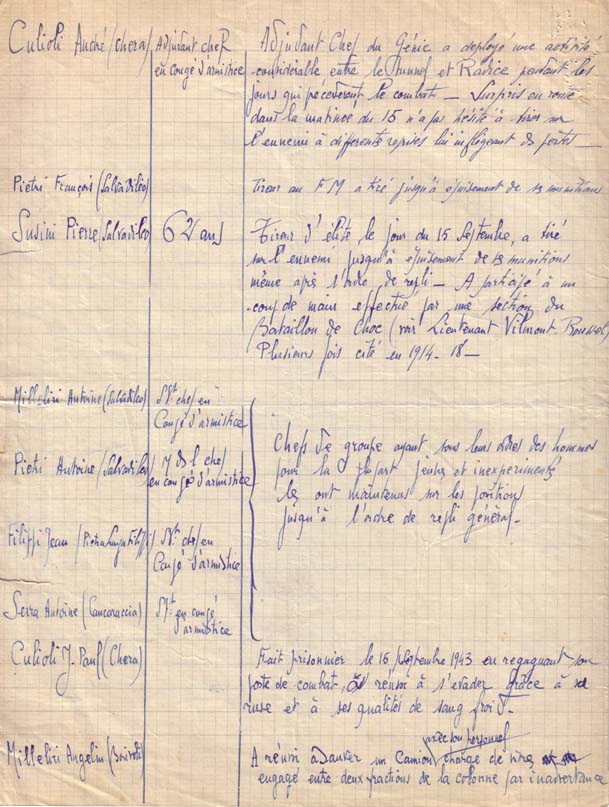 Culioli André (chera) Adjudant chef Adjudant Chef du Génie a déployé une activité
en congé d'armistice considérable entre le Tunnel et Radice pendant les
jours qui précédèrent le combat — Surpris en route
dans la matinée du 15 n'a pas hésité à tirer sur
l'ennemi à différentes reprises lui infligeant des pertes —
Pietri François (Salvadiléo) Tireur au FM a tiré jusqu'à épuisement de ses munitions
Susini Pierre (Salvadiléo) 62 ans Tireur d'élite, le jour du 15 Septembre, a tiré
sur l'ennemi jusqu'à épuisement de ses munitions
même après l'ordre de repli — A participé à un
coup de main effectué par une section du
Bataillon de Choc (voir Lieutenant Vilmont-Roussel)
Plusieurs fois cité en 1914-18 —
Milleliri Antoine (Salvadiléo) Sgt chef en
Congé d'armistice
Pietri Antoine (Salvadiléo) M de L chef
en congé d'armistice
Filippi Jean (Pietra Filippi) Sgt chef en
Congé d'armistice
Serra Antoine (Cancaraccia) Sgt en congé
d'armistice
Chefs de groupe ayant sous leurs ordres des hommes
pour la plupart jeunes et inexpérimentés
les ont maintenus sur les position
jusqu'à l'ordre de repli général.
Culioli J. Paul (Chera) Fait prisonnier le 16 Septembre 1943 en regagnant son
poste de combat, a réussi à s'évader grâce à sa
ruse et à ses qualités de sang froid.
Milleliri Angelin (Bonifacio) A réussi à sauver un Camion avec son personnel chargé de vivres
engagé entre deux fractions de la colonne par inadvertance